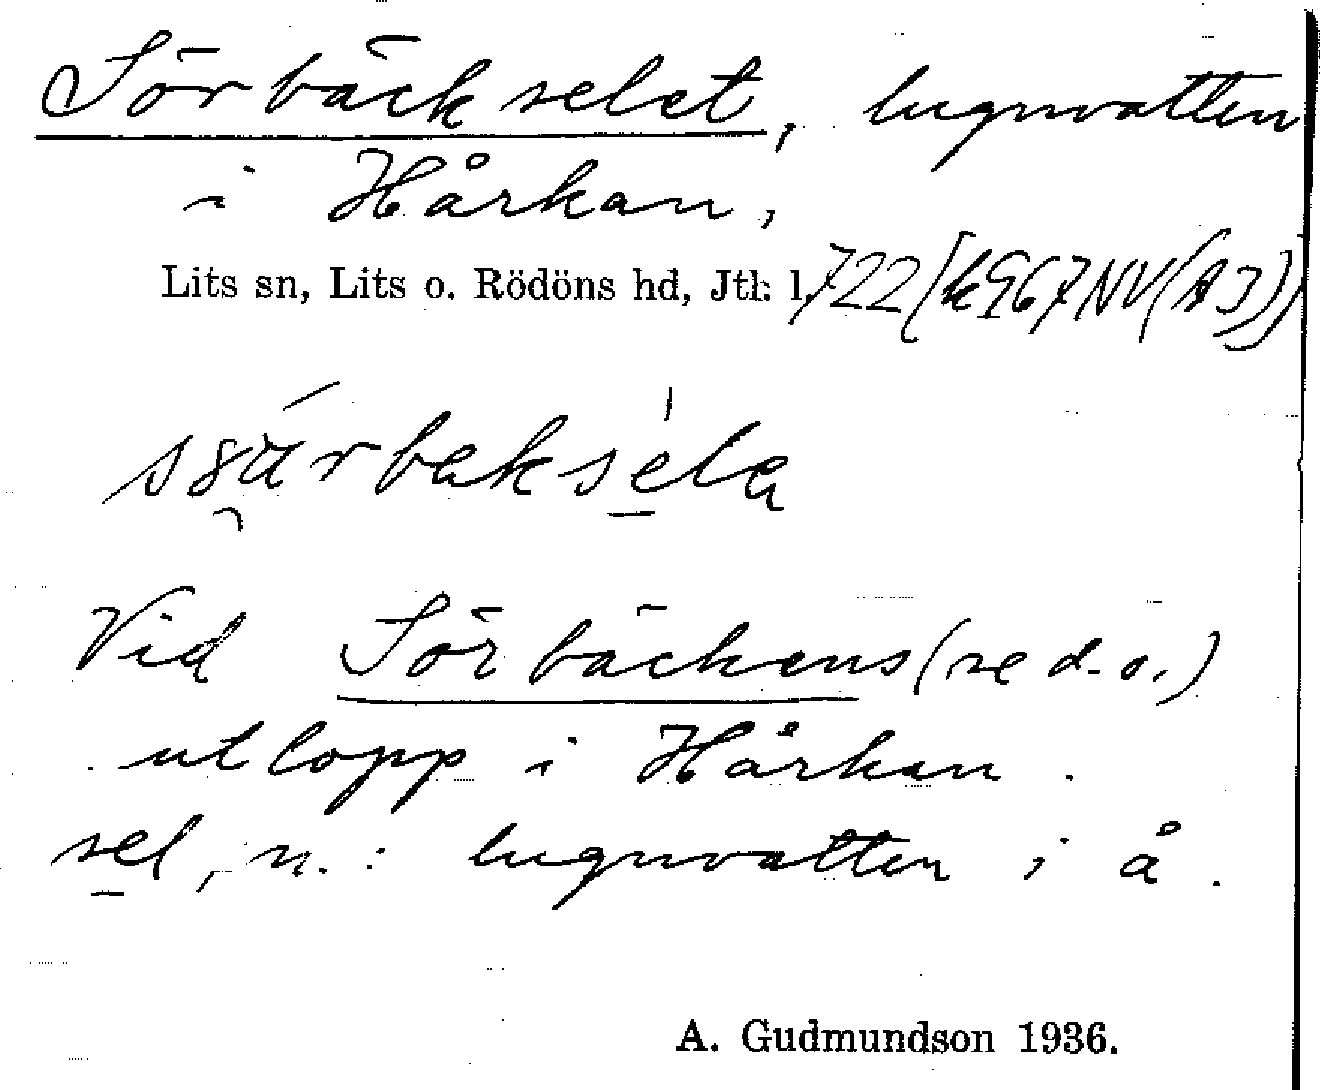 Sörbäckselet, lugnvatten
i Hårkan,
Lits sn, Lits o. Rödöns hd, Jtl: l. 722 [k967NV(A3)]
Vid Sörbäckens (se d.o.)
utlopp i Hårkan.
sel, n.: lugnvatten i å.
A. Gudmundson 1936.